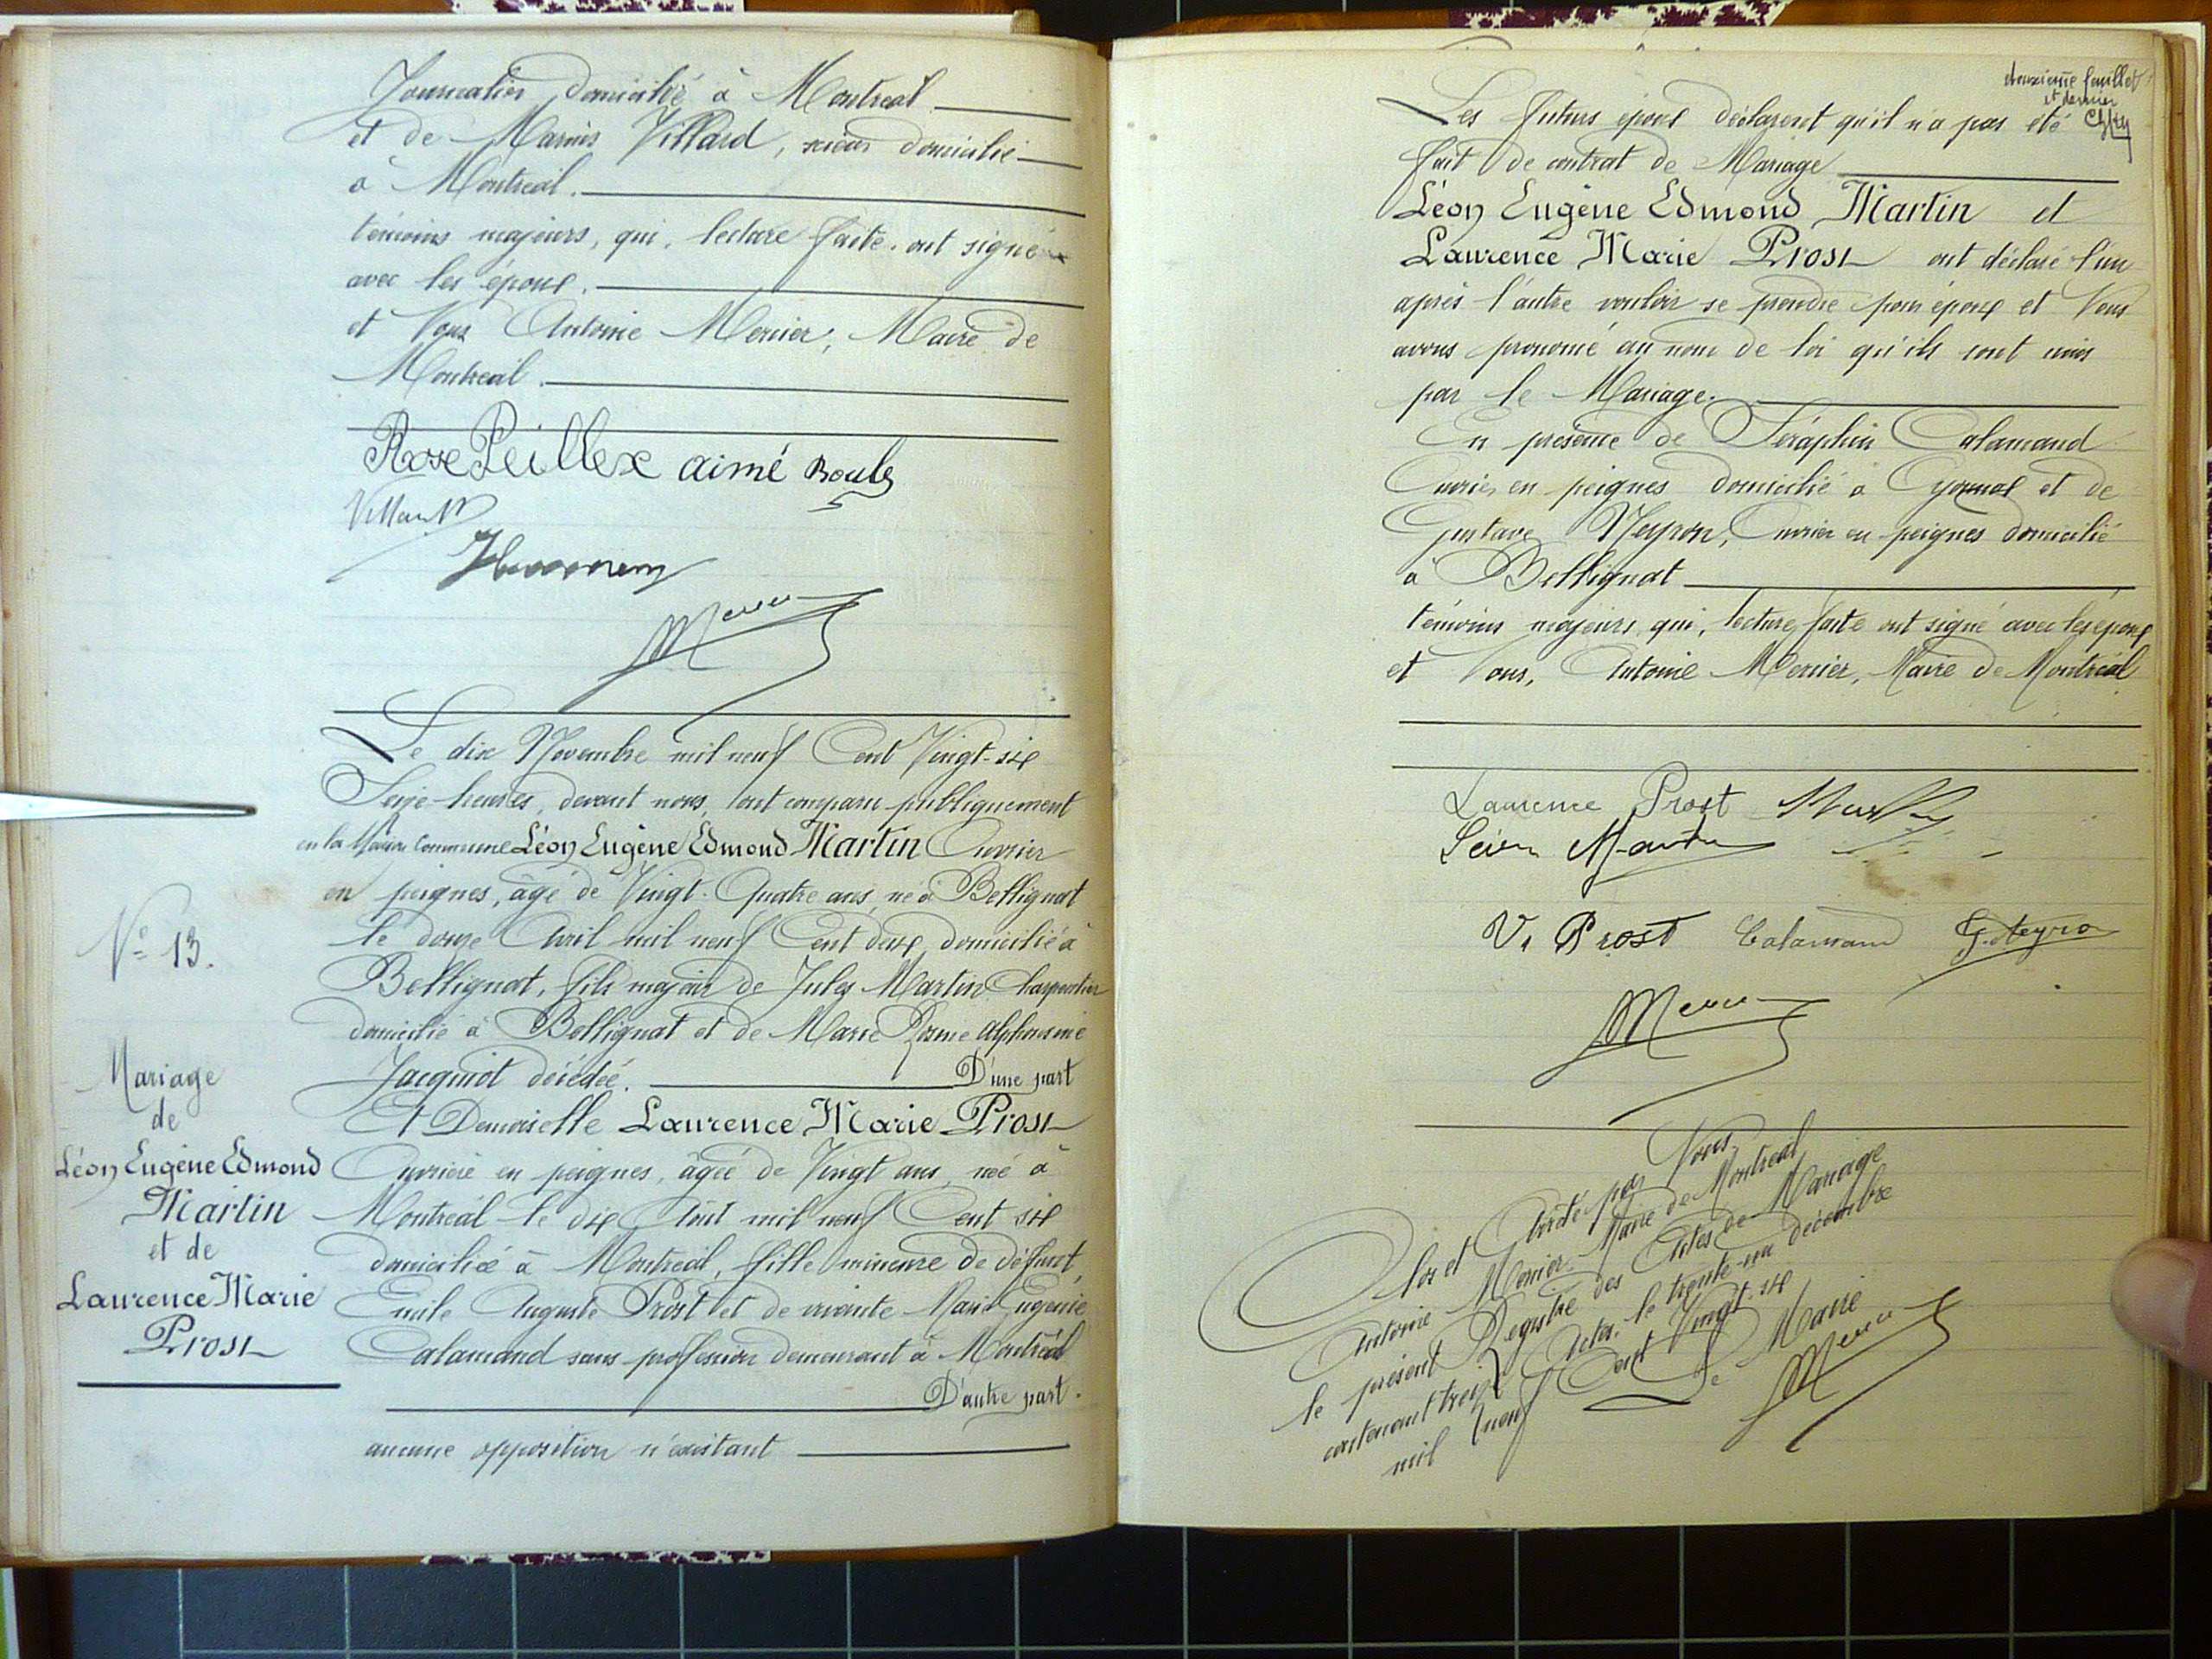 Journalier domicilié à Montréal
et de Marius Villard, scieur domicilié
à Montréal.
témoins majeurs, qui, lecture faite. ont signé
avec les époux.
et Nous Antoine Mercier, Maire de
Montréal.
Rose Peillex aimé Boule
Villard
Mercier
Le dix Novembre mil neuf Cent Vingt-six
Seize heures, devant nous, ont comparu publiquement
en la Maison Commune Léon Eugène Edmond Martin Ouvrier
en peignes, âgé de Vingt-Quatre ans, né à Bellignat
le douze Avril mil neuf Cent deux, domicilié à
Bellignat, fils majeur de Jules Martin Charpentier
domicilié à Bellignat et de Marie Alphonsine
Jacquiot décédée. D'une part
Et Demoiselle Laurence Marie Prost
Ouvrière en peignes, âgée de Vingt ans, née à
Montréal le dix Août mil neuf Cent six
domiciliée à Montréal, fille mineure de défunt
Emile Auguste Prost et de vivante Marie Eugénie
Calamand sans profession demeurant à Montréal
D'autre part.
aucune opposition n'existant
N° 13.
Mariage
de
Léon Eugène Edmond
Martin
et de
Laurence Marie
Prost
deuxième feuillet
et dernier
Les futurs époux déclarent qu'il n'a pas été
fait de contrat de Mariage
Léon Eugène Edmond Martin et
Laurence Marie Prost ont déclaré l'un
après l'autre vouloir se prendre pour époux et Nous
avons prononcé au nom de loi qu'ils sont unis
par le Mariage.
En présence de Séraphin Calamand
Ouvrier en peignes domicilié à Oyonnax et de
Gustave Neyron, Ouvrier en peignes domicilié
à Bellignat
témoins majeurs, qui, lecture faite ont signé avec les époux
et Nous, Antoine Mercier, Maire de Montréal
Laurence Prost
Léon Martin
Ve Prost Calamand G. Neyron
Mercier
Clos et Arrêté par Nous,
Antoine Mercier Maire de Montréal,
le présent Registre des Actes de Mariage
contenant treize Actes. le trente-un décembre
mil neuf Cent Vingt-six
Le Maire
Mercier